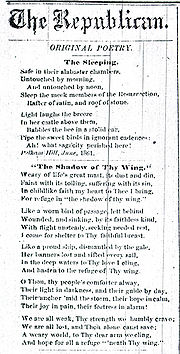 The Republican.
ORIGINAL POETRY.
The Sleeping.
Safe in their alabaster chambers,
Untouched by morning,
And untouched by noon,
Sleep the meek members of the Resurrection,
Rafter of satin, and roof of stone.
Light laughs the breeze
In her castle above them,
Babbles the bee in a stolid ear,
Pipe the sweet birds in ignorant cadences:
Ah! what sagacity perished here!
Pelham Hill, June, 1861.
"The Shadow of Thy Wing."
Weary of life's great mart, its dust and din,
Faint with its toiling, suffering with its sin,
In childlike faith my heart to Thee I bring,
For refuge in "the shadow of thy wing."
Like a worn bird of passage, left behind
Wounded, and sinking, by its faithless kind,
With flight unsteady, seeking needed rest,
I come for shelter to Thy faithful breast.
Like a proud ship, dismantled by the gale,
Her banners lost and rifted every sail,
In the deep waters to Thy love I cling,
And hasten to the refuge of Thy wing.
O Thou, thy people's comforter alway,
Their light in darkness, and their guide by day,
Their anchor 'mid the storm, their hope in calm,
Their joy in pain, their fortress in alarm!
We are all weak, Thy strength we humbly crave;
We are all lost, and Thou alone canst save;
A weary world, to Thy dear arms we cling,
And hope for all a refuge "'neath Thy wing."